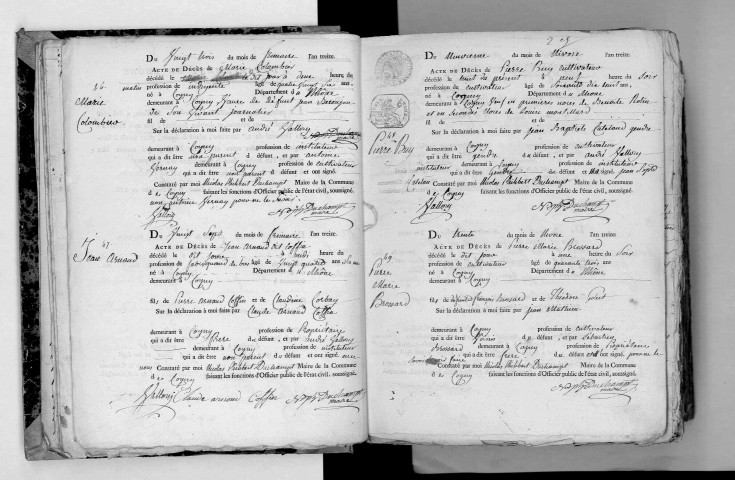 46
Marie
Colombier
Du Vingt trois du mois de frimaire l'an treize.
ACTE DE DÉCÈS de Marie Colombier
décédé le dit jour à deux heure du
matin profession de indigente âgé de ans,
né à Cogny Département d u Rhône
demeurant à Cogny Veuve de défunt jean
de Son Vivant journalier
fil de et de
Sur la déclaration à moi faite par andré Sallony
demeurant à Cogny profession de instituteur
qui a dit être non parent d défunt, et par antoine
Gernay demeurant à Cogny profession de cultivateur
qui a dit être non parent d défunt et ont signé.
Constaté par moi Nicolas Philibert Duchampt Maire de la Commune
d e Cogny faisant les fonctions d'Officier public de l'état civil, soussigné,
Sallony
N. Ph. Duchampt
maire
47
Jean Arnaud
Du Vingt Sept du mois de frimaire l'an treize.
ACTE DE DÉCÈS de Jean Arnaud dit Coffin
décédé le dit jour à midi heure du
profession de âgé de Vingt quatre ans,
né à Cogny Département d u Rhône
demeurant à Cogny
fils de Pierre Arnaud Coffin et de Claudine Corbay
Sur la déclaration à moi faite par Claude Arnaud Coffin
demeurant à Cogny profession de Propriétaire
qui a dit être frère d u défunt, et par André Sallony
demeurant à Cogny profession de instituteur
qui a dit être non parent d u défunt et ont signé. avec
nous Constaté par moi Nicolas Philibert Duchampt Maire de la Commune
d e Cogny faisant les fonctions d'Officier public de l'état civil, soussigné,
Sallony Claude arnaud Coffin N. Ph. Duchampt
maire
48
Pierre Buy
Du Neuvieme du mois de Nivose l'an treize.
ACTE DE DÉCÈS de Pierre Buy Cultivateur
décédé le huit du présent à neuf heure du Soir
profession de cultivateur âgé de Soixante dix huit ans,
né à Cogny Département d u Rhône
demeurant à Cogny Veuf en premières noces de Benoite
et en Secondes noces de Louise
fil de et de
Sur la déclaration à moi faite par jean Baptiste Cateland gendre
demeurant à Cogny profession de cultivateur
qui a dit être gendre d u défunt, et par andré Sallony
instituteur demeurant à Cogny profession de instituteur
qui a dit être d u défunt et ont signé.
Constaté par moi Nicolas Philibert Duchampt Maire de la Commune
d e Cogny faisant les fonctions d'Officier public de l'état civil, soussigné,
Sallony
N. Ph. Duchampt
maire
49
Pierre
Marie
Brossard
Du Trente du mois de Nivose l'an treize.
ACTE DE DÉCÈS de Pierre Marie Brossard
décédé le dit jour à une heure du Soir
profession de cultivateur âgé de quarante trois ans
né à Cogny Département d u Rhône
demeurant à Cogny
fils de défunt françois Brossard et de Théodore
Sur la déclaration à moi faite par Jean Mathieu
demeurant à Cogny profession de cultivateur
qui a dit être d u défunt, et par Sébastien
Brossard demeurant à Cogny profession de Propriétaire
qui a dit être frère d u défunt et ont signé.
Constaté par moi Nicolas Philibert Duchampt Maire de la Commune
d e Cogny faisant les fonctions d'Officier public de l'état civil, soussigné,
N. Ph. Duchampt
maire